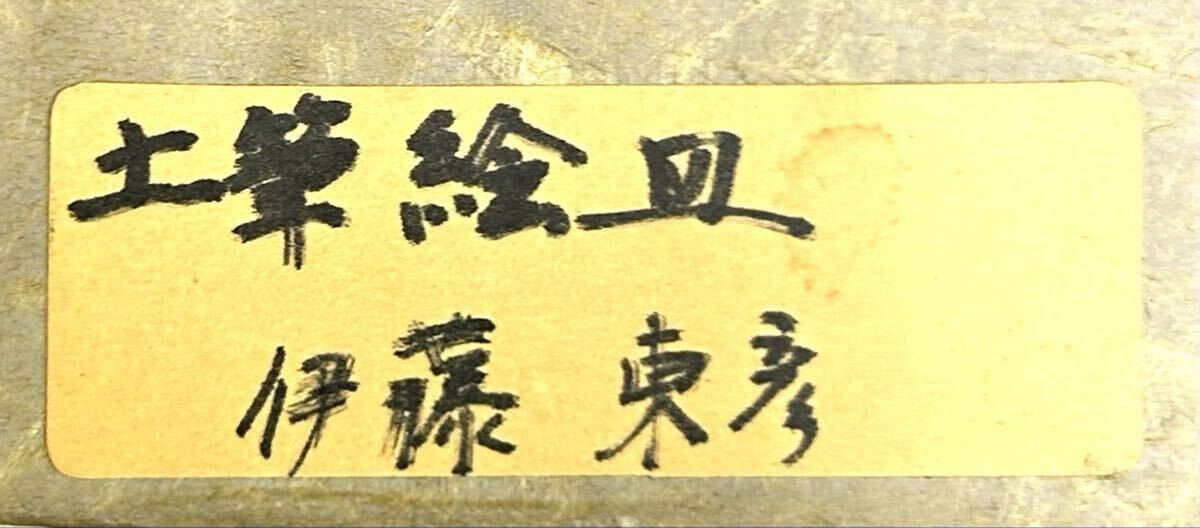 土筆絵皿
伊藤東彦